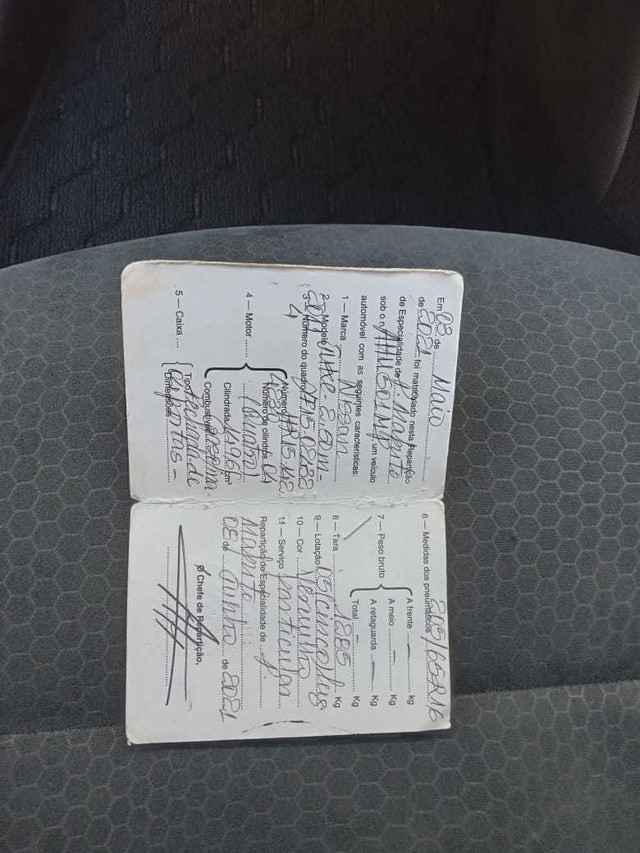 Em 03 de Maio
de 2021 foi matriculado nesta Repartição
de Especialidade de V. Maputo
sob o n.º um veículo
automóvel com as seguintes características:
1 — Marca Nissan
2 — Modelo
3 — Número do quadro
4 — Motor
Número
Número de cilindros 04
(quatro)
Cilindrada cm³
Combustível Gasolina
5 — Caixa
Tipo Fechada de
Dimensões
6 — Medidas dos pneumáticos 205/65R16
7 — Peso bruto
A frente — kg
A meio — Kg
A retaguarda — Kg
Total — Kg
8 — Tara 1285 Kg
9 — Lotação 05/cinco/lug
10 — Cor Vermelho
11 — Serviço particular
Repartição de Especialidade de
Maputo
08 de Junho de 2021
O Chefe de Repartição,